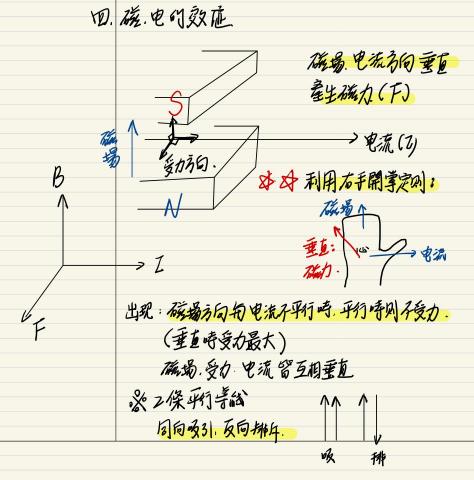 四. 磁.电的效应
磁場.电流方向垂直
產生磁力(F)
S
磁場
电流(I)
受力方向.
N
☆☆ 利用右手開掌定则:
B
I
F
磁場
垂直:
磁力.
心
电流
出现: 磁場方向与电流不平行時.平行時則不受力.
(垂直時受力最大)
磁場.受力.电流 皆互相垂直
※ 2條平行導線
同向吸引,反向排斥.
吸
排